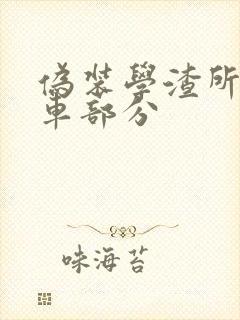 偽裝學渣所
車部分
味海苔